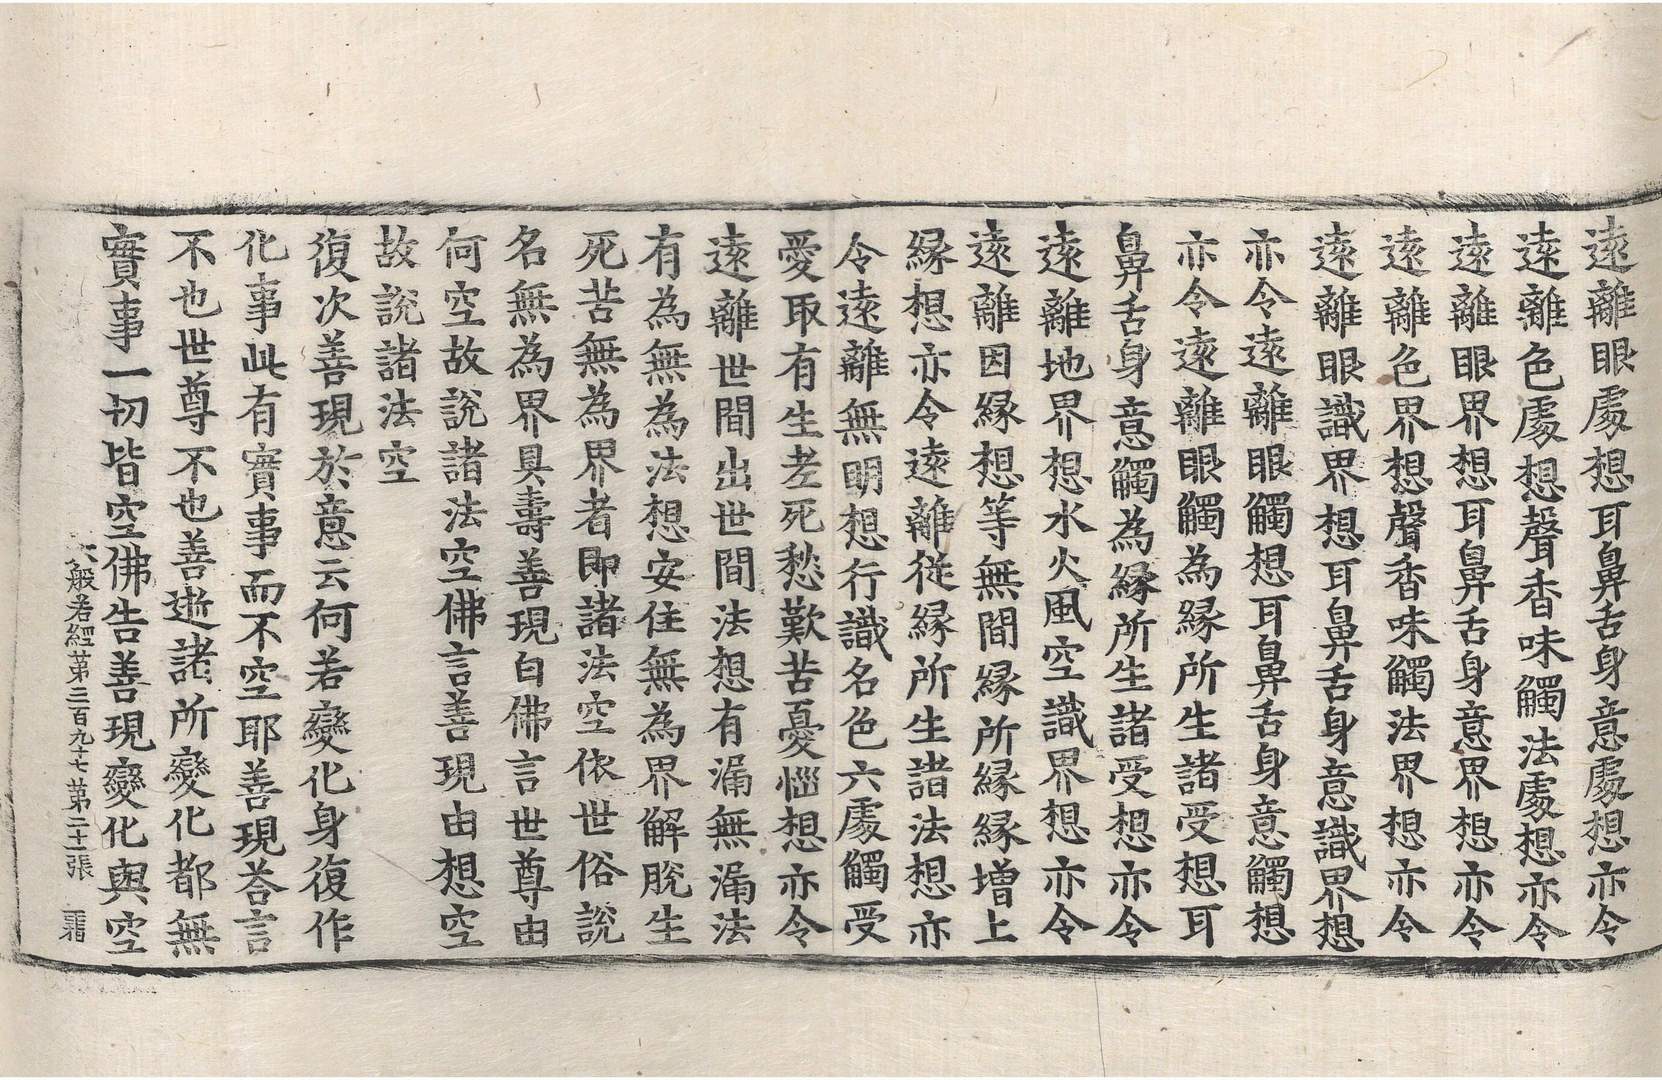 遠離眼處想耳鼻舌身意處想亦令
遠離色處想聲香味觸法處想亦令
遠離眼界想耳鼻舌身意界想亦令
遠離色界想聲香味觸法界想亦令
遠離眼識界想耳鼻舌身意識界想
亦令遠離眼觸想耳鼻舌身意觸想
亦令遠離眼觸為緣所生諸受想耳
鼻舌身意觸為緣所生諸受想亦令
遠離地界想水火風空識界想亦令
遠離因緣想等無間緣所緣緣增上
緣想亦令遠離從緣所生諸法想亦
令遠離無明想行識名色六處觸受
愛取有生老死愁歎苦憂惱想亦令
遠離世間出世間法想有漏無漏法
有為無為法想安住無為界解脫生
死苦無為界者即諸法空依世俗說
名無為界具壽善現白佛言世尊由
何空故說諸法空佛言善現由想空
故說諸法空
復次善現於意云何若變化身復作
化事此有實事而不空耶善現荅言
不也世尊不也善逝諸所變化都無
實事一切皆空佛告善現變化與空
大般若經第三百九十七 第二十一張